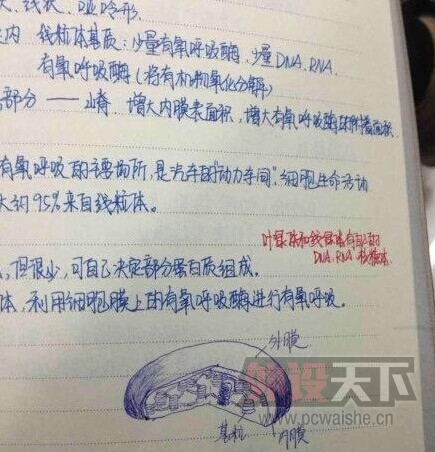 线状、哑铃形
内 线粒体基质:少量有氧呼吸酶、少量DNA、RNA
有氧呼吸酶(将有机物氧化分解)
部分——嵴、增大内膜表面积,增大有氧呼吸酶附着面积
有氧呼吸的主要场所,是汽车的"动力车间",细胞生命活动
大约95%来自线粒体。
叶绿体和线粒体有自己的
DNA、RNA核糖体
但很少,可自己决定部分蛋白质组成。
体,利用细胞膜上的有氧呼吸酶进行有氧呼吸。
外膜
设天下
www.pcwaishe.cn
基粒
内膜